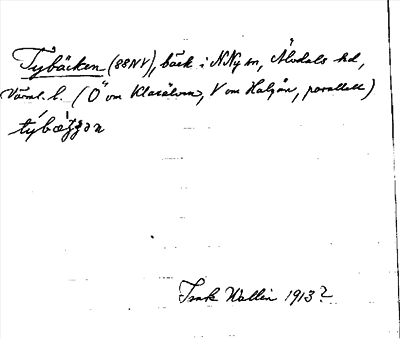 Tybäcken (88NV), bäck i N Ny sn, Älvdals hd,
Värml. l. (Ö om Klarälven, V om Halgån, parallell)
týbæ̀ʒʒən
Isak Wallin 1913?